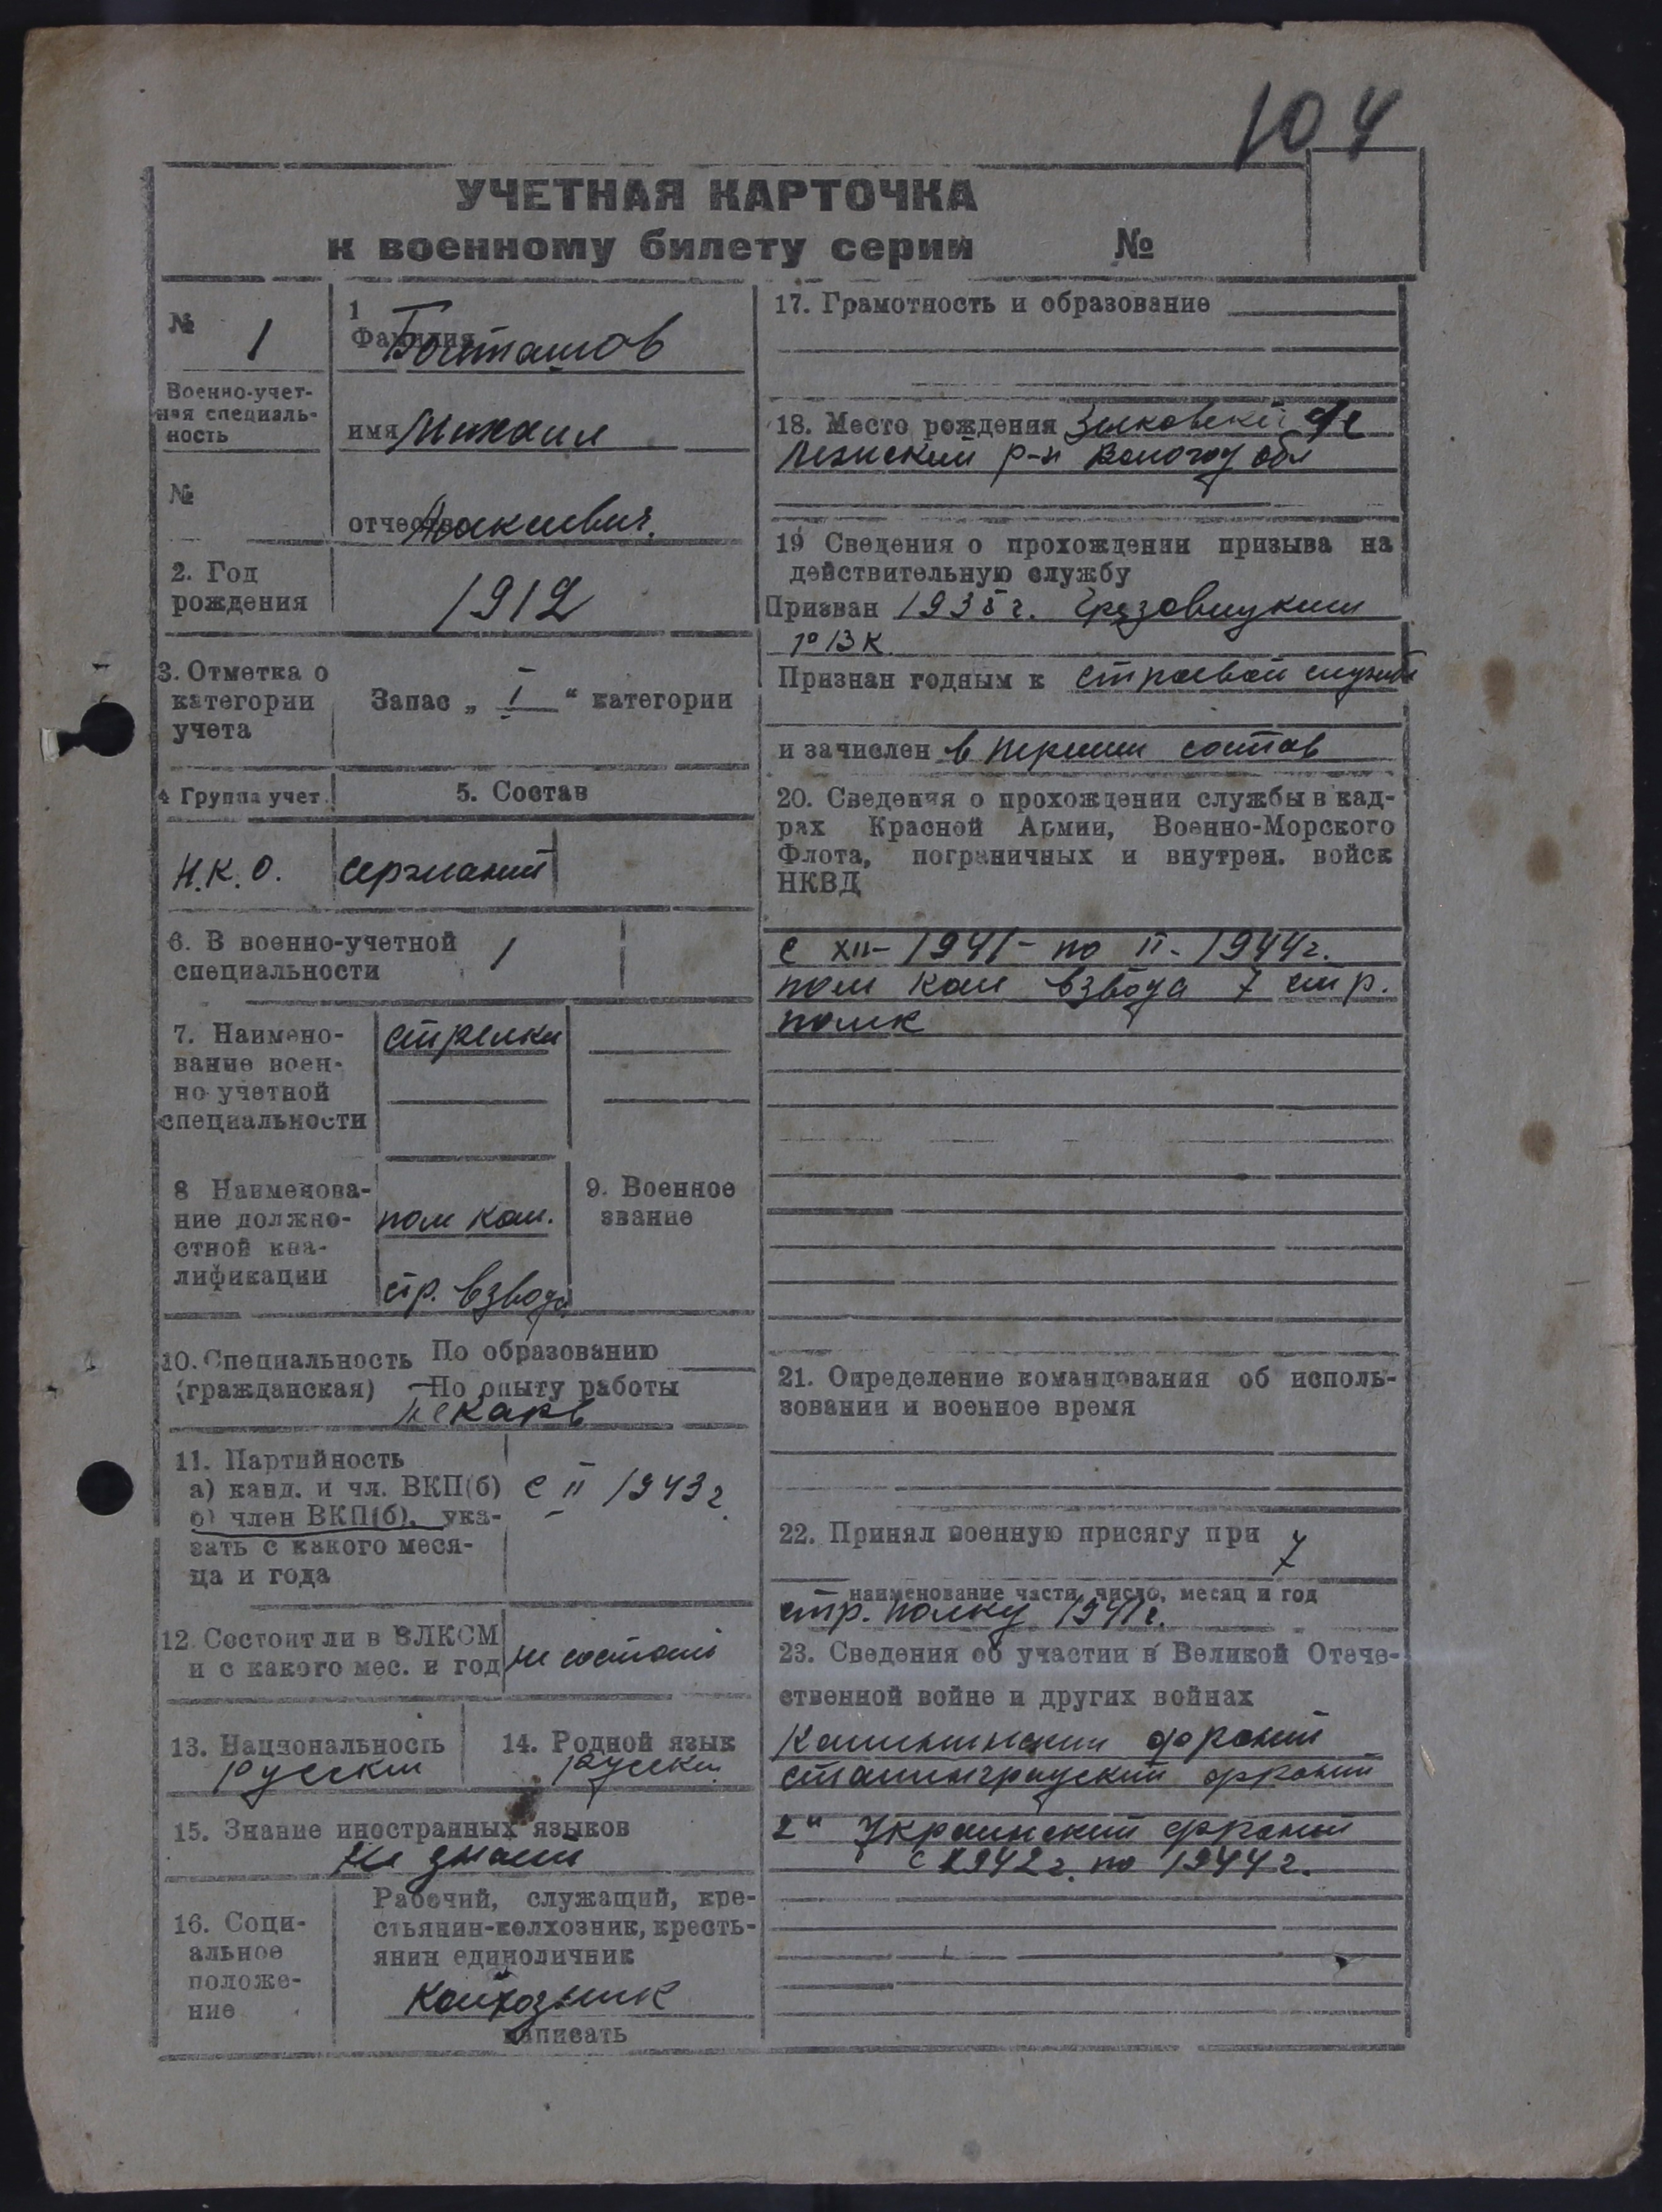 104
УЧЕТНАЯ КАРТОЧКА
к военному билету серии №
№ 1
Военно-учет-
ная специаль-
ность
№
1
Фамилия
имя Михаил
отчество
2. Год
рождения
1912
3. Отметка о
категории
учета
Запас „ I “ категории
4 Группа учет.
5. Состав
Н.К.О.
сержант
6. В военно-учетной
специальности
1
7. Наимено-
вание воен-
но учетной
специальности
стрелки
8 Наименова-
ние должно-
стной ква-
лификации
пом ком.
стр. взвода
9. Военное
звание
10. Специальность
(гражданская)
По образованию
По опыту работы
пекарь
11. Партийность
а) канд. и чл. ВКП(б)
б) член ВКП(б), ука-
зать с какого меся-
ца и года
с II 1943 г
12. Состоит ли в ВЛКСМ
и с какого мес. и год
не состоит
13. Национальность
русский
14. Родной язык
русский
15. Знание иностранных языков
не знает
16. Соци-
альное
положе-
ние
Рабочий, служащий, кре-
стьянин-колхозник, кресть-
янин единоличник
колхозник
написать
17. Грамотность и образование
18. Место рождения
р-н Вологод обл
19 Сведения о прохождении призыва на
действительную службу
Призван 1935 г.
РВК
Признан годным к строевой службе
и зачислен в состав
20. Сведения о прохождении службы в кад-
рах Красной Армии, Военно-Морского
Флота, пограничных и внутрен. войск
НКВД
с XII-1941- по II-1944г.
пом ком взвода 7 стр.
полк
21. Определение командования об исполь-
зовании и военное время
22. Принял военную присягу при 7
наименование части, число, месяц и год
стр. полку 1941 г.
23. Сведения об участии в Великой Отече-
ственной войне и других войнах
Калининский фронт
сталинградский фронт
2й Украинский фронт
с 1942 г. по 1944 г.